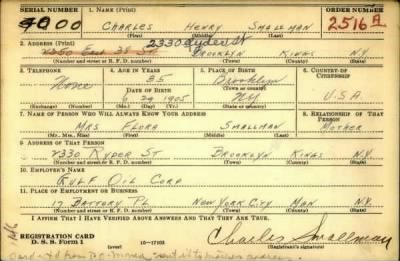 SERIAL NUMBER 1. NAME (Print) ORDER NUMBER
CHARLES HENRY SMALLMAN 2516A
(First) (Middle) (Last)
2. ADDRESS (Print) 2330 Ryder St
BROOKLYN KINGS N.Y.
(Number and street or R. F. D. number) (Town) (County) (State)
3. TELEPHONE 4. AGE IN YEARS 5. PLACE OF BIRTH 6. COUNTRY OF CITIZENSHIP
None 35 Brooklyn
DATE OF BIRTH (Town or county)
29 1905 NY U.S.A
(Exchange) (Number) (Mo.) (Day) (Yr.) (State or country)
7. NAME OF PERSON WHO WILL ALWAYS KNOW YOUR ADDRESS 8. RELATIONSHIP OF THAT PERSON
MRS FLORA SMALLMAN MOTHER
(Mr., Mrs., Miss) (First) (Middle) (Last)
9. ADDRESS OF THAT PERSON
2330 RYDER ST BROOKLYN KINGS N.Y.
(Number and street or R. F. D. number) (Town) (County) (State)
10. EMPLOYER'S NAME
GULF OIL CORP
11. PLACE OF EMPLOYMENT OR BUSINESS
17 BATTERY PL NEW YORK CITY MAN N.Y.
(Number and street or R. F. D. number) (Town) (County) (State)
I AFFIRM THAT I HAVE VERIFIED ABOVE ANSWERS AND THAT THEY ARE TRUE.
REGISTRATION CARD
D. S. S. Form 1 (over) 16—17105 Charles Smallman
(Registrant's signature)